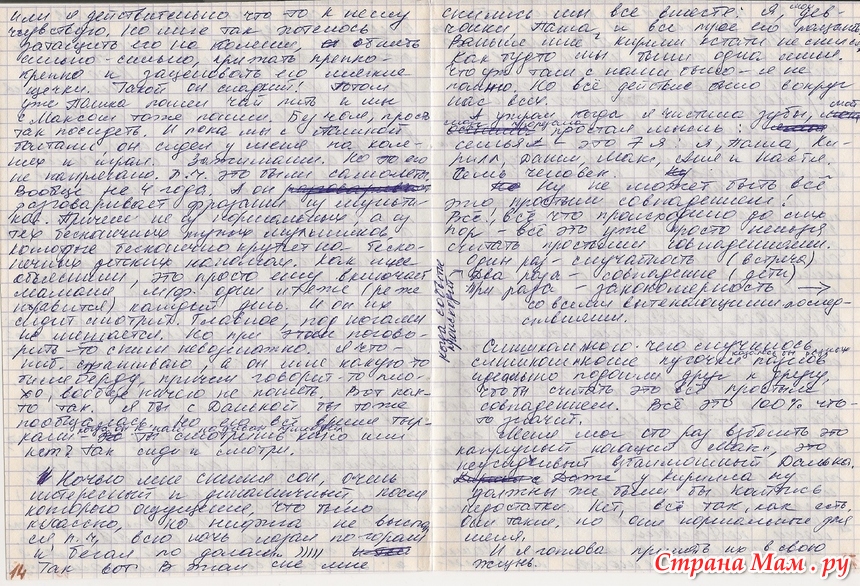 или я действительно что то к нему
чувствую. Но мне так хотелось
затащить его на колени, обнять
сильно-сильно, прижать крепко-
крепко и зацеловать его мягкие
щечки. Такой он сладкий! Потом
уже Пашка пошел чай пить и мы
с Максом тоже пошли. Ему чай, просто
так посидеть. И пока мы с Пашкой
болтали он сидел у меня на коле-
нях и играл. Зажигалками. Но то его
не напрягало. П.ч. это были самолеты.
Вообще не 4 года. А он
разговаривает фразами из мультиков.
Причем не из нормальных а из
тех бесконечных тупых мультиков
которые бесконечно крутят на беско-
нечных детских каналах. Как мне
объяснили, это просто ему включает
маманя м/ф. одни и те же (реже
нравится) каждый день. И он их
сидит смотрит. Главное под ногами
не мешается. Но при этом погово-
рить-то с ним невозможно. Я что-
спрашиваю, а он мне какую-то
белиберду, причем говорит-то пло-
хо, вообще ничего не понять. Вот как-
то так. Я бы с Данькой бы тоже
пообщалась
ты смотришь кино или
нет? Так сиди и смотри.
Ночью мне снится сон, очень
интересный и динамичный, после
которого ощущение, что было
классно, но нифига не выспа
лся п.ч. всю ночь лазал по горам
и бегал по долам )))))
14 Так вот. В этом сне мне
снились мы все вместе: я, мои дев
чонки, Паша и все трое его пацанов
Раньше мне Кирилл кстати не снился
как будто мы были одна семья.
Что уж там с нами было - я не
помню. Но всё действие было вокруг
нас всех.
А утром, когда я чистила зубы,
простая мысль:
семья - это 7 Я: я, Паша, Ки-
рилл, Даник, Макс, Аня и Настя.
Семь человек.
Ну не может быть всё
это простым совпадением!
Всё! Всё что происходило до сих
пор - всё это уже просто нельзя
считать простыми совпадениями.
Один раз - случайность (встреча)
Два раза - совпадение (дети)
Три раза - закономерность →
со всеми вытекающими послед-
ствиями.
когда события
Слишком много чего случилось,
слишком многие кусочки пазлов
идеально подошли друг к другу,
чтобы считать это всё простым
совпадением. Всё это 100% что-
то значит.
Меня мог сто раз взбесить это
капризный Макс, это
Данька,
у Кирилла ну
должны же были бы найтись
недостатки. Нет, всё так, как есть,
они такие, но они нормальные для
меня.
И я готова принять их в свою
жизнь.
Страна Мам.ру